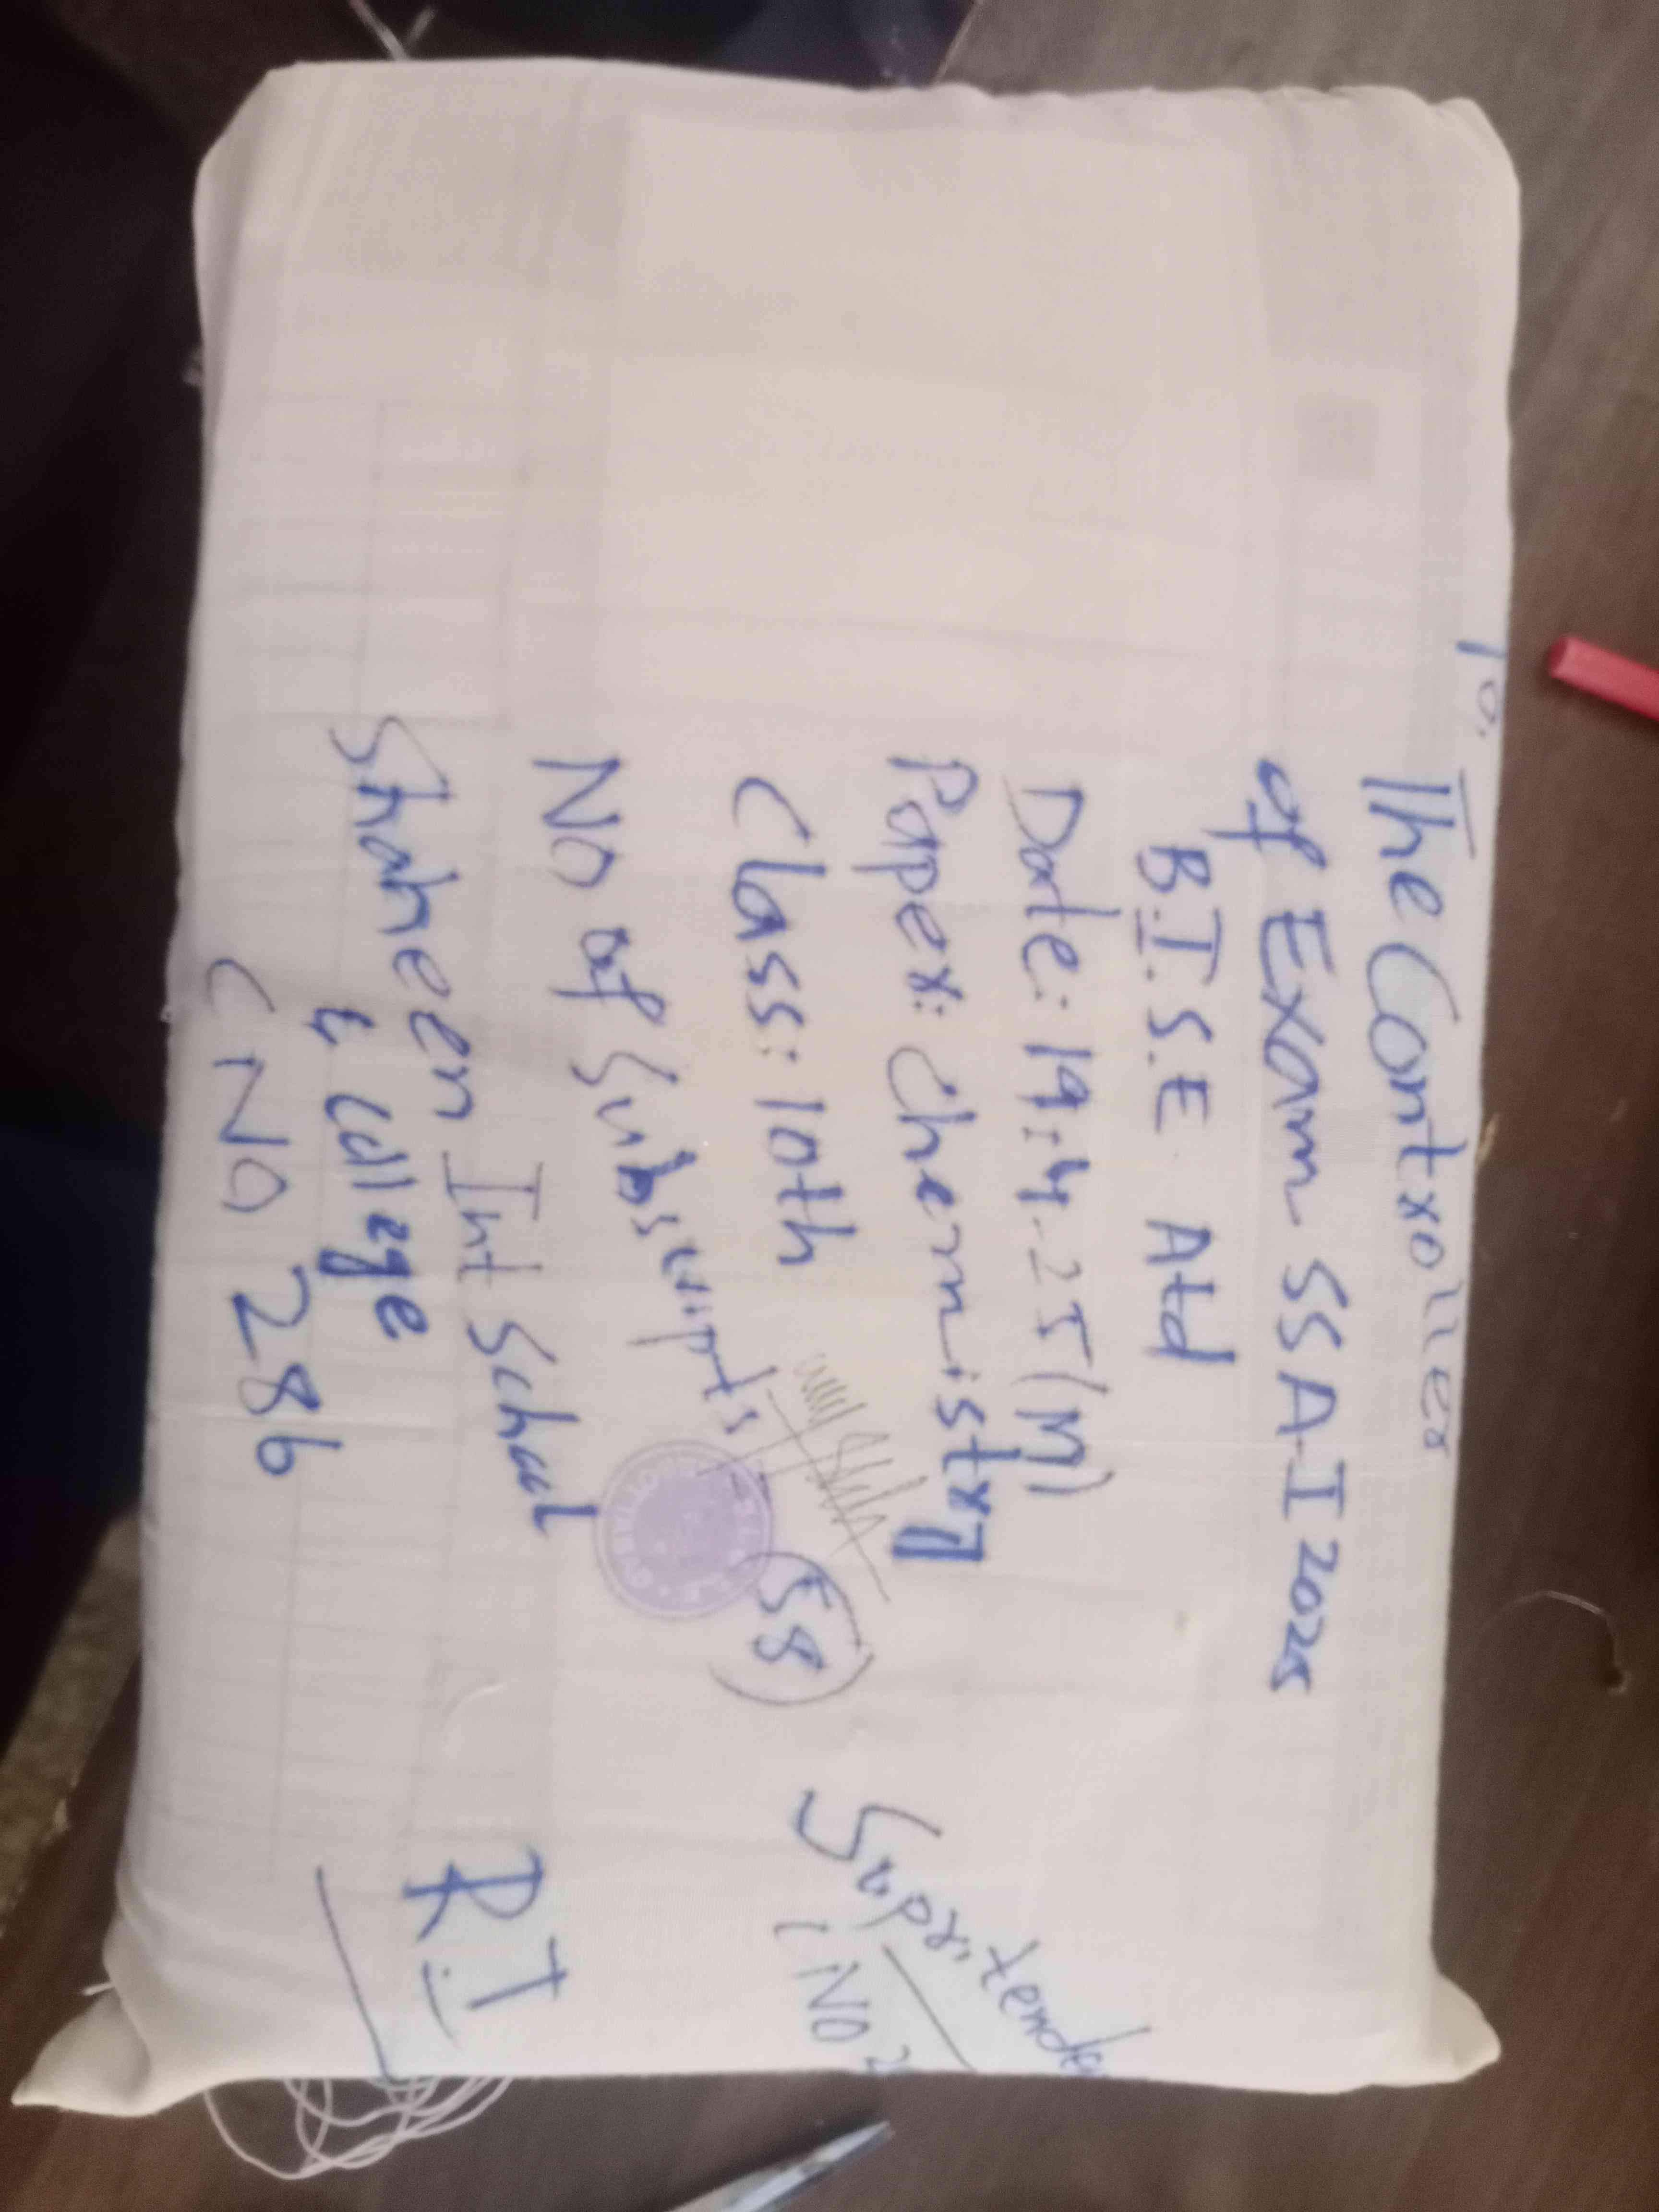 To.
The Controller
of Exam SSA-I 2025
B.I.S.E Atd
Date: 19.4.25 (M)
Paper: Chemistry
Class: 10th
No of Subscripts = (58)
Shaheen Int School
& College
C NO 286
R.I